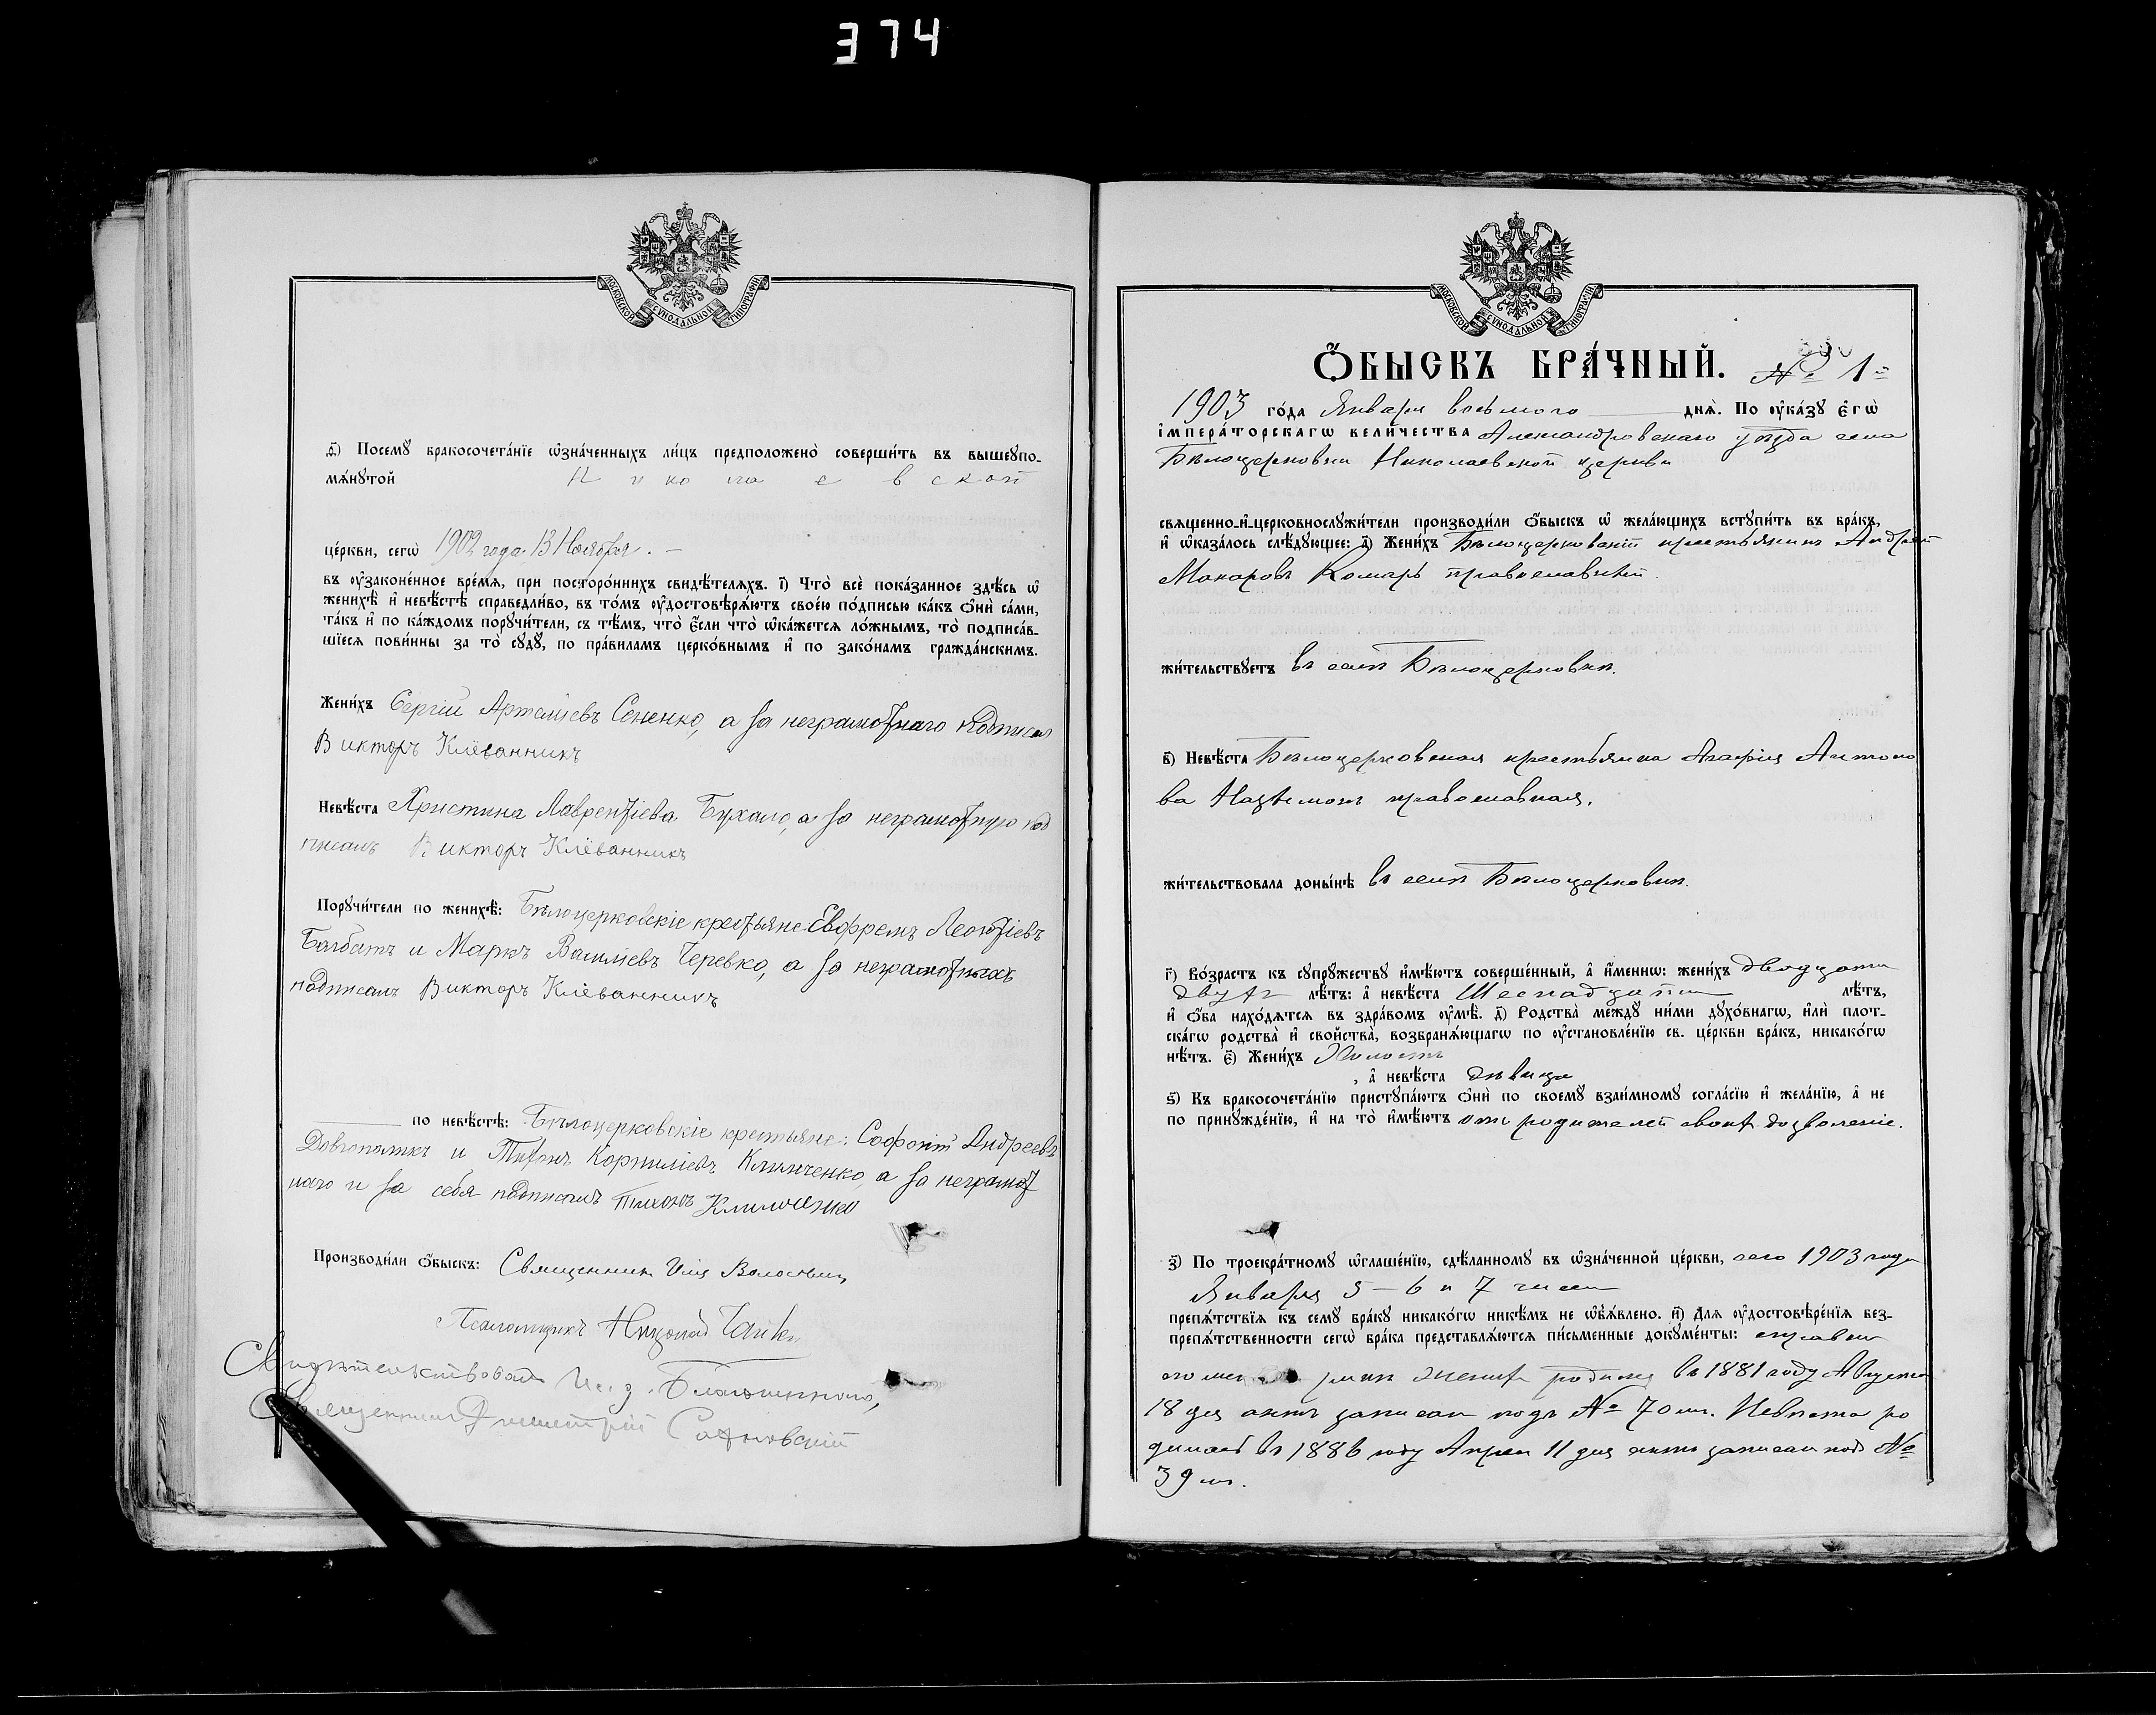 374
МОСКОВСКОЙ СУНОДАЛЬНОЙ ТИПОГРАФІИ
Посемꙋ̀ бракосочета́нїе ѡ҆зна́ченныхъ ли́цъ предположено̀ соверши́ть въ вышеꙋпо-
мѧ́нꙋтой Николаевской
це́ркви, сегѡ̀ 1902 года 13 Ноября. –
въ ꙋ҆законе́нное вре́мѧ, при посторо́ннихъ свидѣ́телѧхъ. і҃) Что̀ всѐ пока́занное здѣ́сь ѡ҆
женихѣ̀ и҆ невѣ́стѣ справедли́во, въ то́мъ ꙋ҆достовѣрѧ́ютъ свое́ю по́дписью ка́къ ѻ҆нѝ са́ми,
та́къ и҆ по ка́ждомъ порꙋчи́тели, съ тѣ́мъ, что̀ є҆́сли что̀ ѡ҆ка́жетсѧ ло́жнымъ, то̀ подписа́в-
шїесѧ пови́нны за то̀ сꙋдꙋ̀, по пра́виламъ церко́внымъ и҆ по зако́намъ гражда́нскимъ.
Жени́хъ Сергій Артеміевъ Сененко, а за неграмотнаго подписал
Викторъ Клёванникъ
Невѣ́ста Христина Лаврентіева Бухало, а за неграмотную под
писалъ Викторъ Клёванникъ
Порꙋчи́тели по женихѣ̀: Бѣлоцерковскіе крестьяне Евфремъ Леонтіевъ
и Маркъ Василіевъ Черевко, а за неграмотныхъ
подписалъ Викторъ Клёванникъ
по невѣ́стѣ: Бѣлоцерковскіе крестьяне: Софоній Андреевъ
и Тихонъ Корниліевъ Климченко, а за неграмот
наго и за себя подписалъ Тихонъ Климченко
Производи́ли ѻ҆́быскъ: Священник Илія
Псаломщикъ
Свидѣтельствовалъ И. д. Благочиннаго,
Священникъ Димитрій
МОСКОВСКОЙ СУНОДАЛЬНОЙ ТИПОГРАФІИ
Ѻ҆́БЫСКЪ БРА́ЧНЫЙ. № 1й
1903 го́да Января восьмого днѧ̀. По ꙋ҆ка́зꙋ є҆гѡ̀
і҆мпера́торскагѡ вели́чества Александровскаго уѣзда села
Бѣлоцерковки Николаевской церкви
свѧщенно-и҆-церковнослꙋжи́тели производи́ли ѻ҆́быскъ ѡ҆ жела́ющихъ встꙋпи́ть въ бра́къ,
и҆ ѡ҆каза́лось слѣ́дꙋющее: а҃) Жени́хъ Бѣлоцерковскій крестьянинъ Андрей
Макаровъ Комаръ православный.
жи́тельствꙋетъ въ селѣ Бѣлоцерковкѣ.
в҃) Невѣ́ста Бѣлоцерковская крестьянка Агафія Антоно
ва православная.
жи́тельствовала доны́нѣ въ селѣ Бѣлоцерковкѣ.
г҃) Во́зрастъ къ сꙋпрꙋ́жествꙋ и҆мѣ́ютъ соверше́нный, а҆ и҆́менно: жени́хъ двадцати
двухъ лѣ́тъ: а҆ невѣ́ста Шеснадцати лѣ́тъ,
и҆ ѻ҆́ба нахо́дѧтсѧ въ здра́вомъ ꙋ҆мѣ̀. д҃) Родства̀ ме́ждꙋ ни́ми дꙋхо́внагѡ, и҆лѝ плот-
ска́гѡ родства̀ и҆ свойства̀, возбранѧ́ющагѡ по ꙋ҆становле́нїю св. це́ркви бра́къ, никако́гѡ
нѣ́тъ. є҃) Жени́хъ Холостъ
, а҆ невѣ́ста дѣвица
ѕ҃) Къ бракосочета́нїю пристꙋпа́ютъ ѻ҆нѝ по своемꙋ̀ взаи́мномꙋ согла́сїю и҆ жела́нїю, а҆ не
по принꙋжде́нїю, и҆ на то̀ и҆мѣ́ютъ отъ родителей своихъ дозволеніе.
з҃) По троекра́тномꙋ ѡ҆глаше́нїю, сдѣ́ланномꙋ въ ѡ҆зна́ченной це́ркви, сего 1903 года
Января 5 – 6 и 7 чиселъ
препѧ́тствїѧ къ семꙋ̀ бра́кꙋ никако́гѡ никѣ́мъ не ѡ҆б̾ѧ́влено. и҃) Длѧ ꙋ҆достовѣре́нїѧ без-
препѧ́тственности сегѡ̀ бра́ка представлѧ́ютсѧ пи́сьменные докꙋме́нты: справка
женихъ родился въ 1881 году Августа
18 дня актъ записан подъ № 70 мъ. Невѣста ро
дилась въ 1886 году Апреля 11 дня актъ записан подъ №
39 мъ.